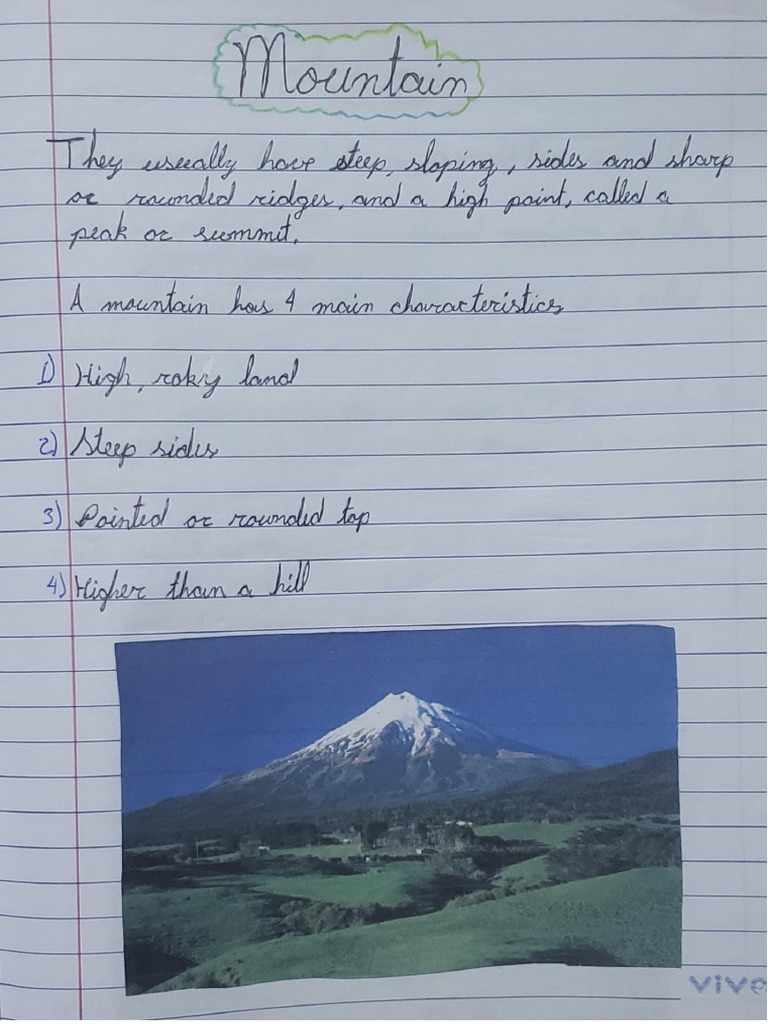 Mountain
They usually have steep, sloping, sides and sharp
or rounded ridges, and a high point, called a
peak or summit.
A mountain has 4 main characteristics
1) High, roky land
2) Steep sides
3) Pointed or rounded top
4) Higher than a hill
vive